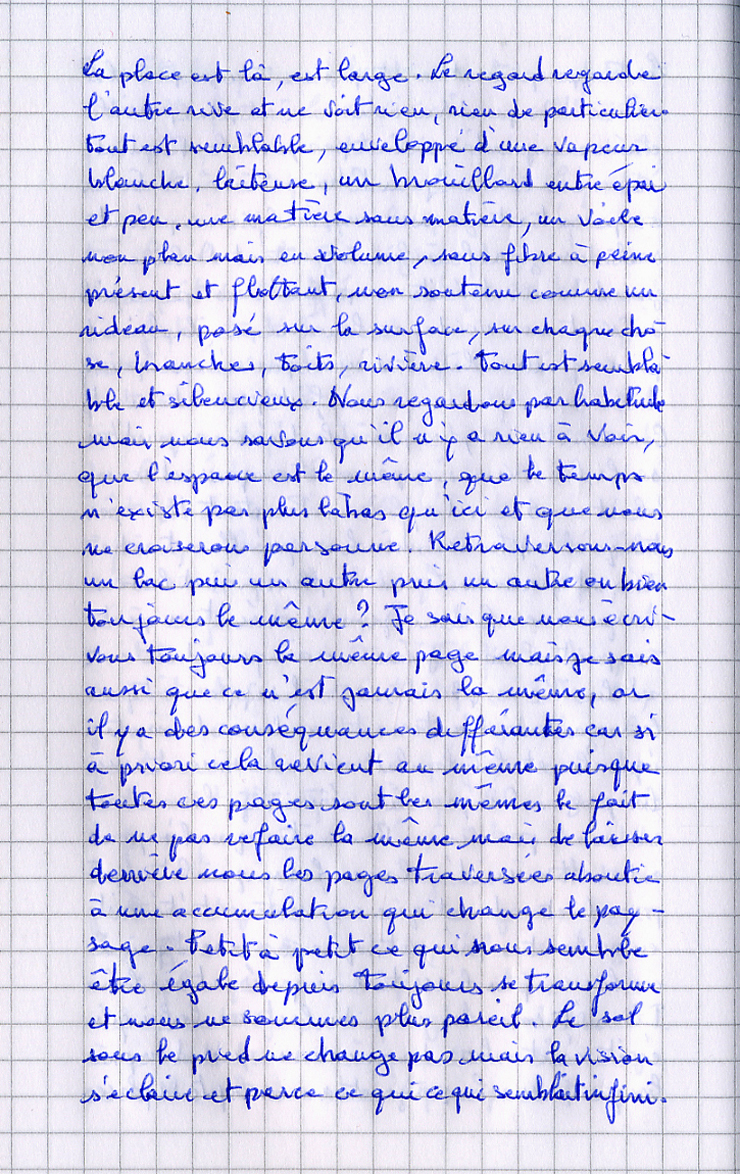 La place est là, est large. Le regard regarde
l'autre rive et ne voit rien, rien de particulier
tout est semblable, enveloppé d'une vapeur
blanche, laiteuse, un brouillard entre épai
et peu, une matière sans matière, un voile
non plan mais en volume, sans fibre à peine
présent et flottant, non soutenu comme un
rideau, posé sur la surface, sur chaque cho-
se, branches, toits, rivière. Tout est sembla-
ble et silencieux. Nous regardons par habitude
mais nous savons qu'il n'y a rien à voir,
que l'espace est le même, que le temps
n'existe pas plus là bas qu'ici et que nous
ne croiserons personne. Retraversons-nous
un lac puis un autre puis un autre ou bien
toujours le même ? Je sais que nous écri-
vons toujours la même page mais je sais
aussi que ce n'est jamais la même, or
il y a des conséquances différantes car si
à priori cela revient au même puisque
toutes ces pages sont les mêmes le fait
de ne pas refaire la même mais de laisser
derrière nous les pages traversées aboutie
à une accumulation qui change le pay-
sage. Petit à petit ce qui nous semble
être égale depuis toujours se transforme
et nous ne sommes plus pareil. Le sol
sous le pied ne change pas mais la vision
s'éclaire et perce ce qui ce qui semblait infini.